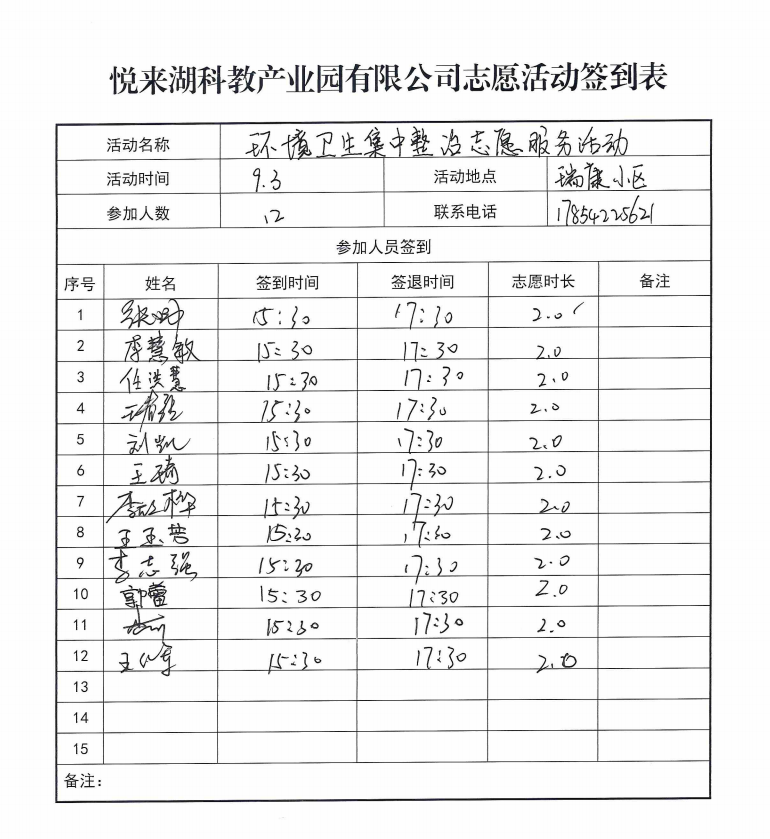 悦来湖科教产业园有限公司志愿活动签到表
活动名称 环境卫生集中整治志愿服务活动
活动时间 9.3 活动地点 瑞康小区
参加人数 12 联系电话 17854225621
参加人员签到
序号 姓名 签到时间 签退时间 志愿时长 备注
1 15:30 17:30 2.0
2 李慧敏 15:30 17:30 2.0
3 任洪慧 15:30 17:30 2.0
4 15:30 17:30 2.0
5 刘凯 15:30 17:30 2.0
6 王琦 15:30 17:30 2.0
7 15:30 17:30 2.0
8 15:30 17:30 2.0
9 李志强 15:30 17:30 2.0
10 郭蕾 15:30 17:30 2.0
11 15:30 17:30 2.0
12 15:30 17:30 2.0
13
14
15
备注：